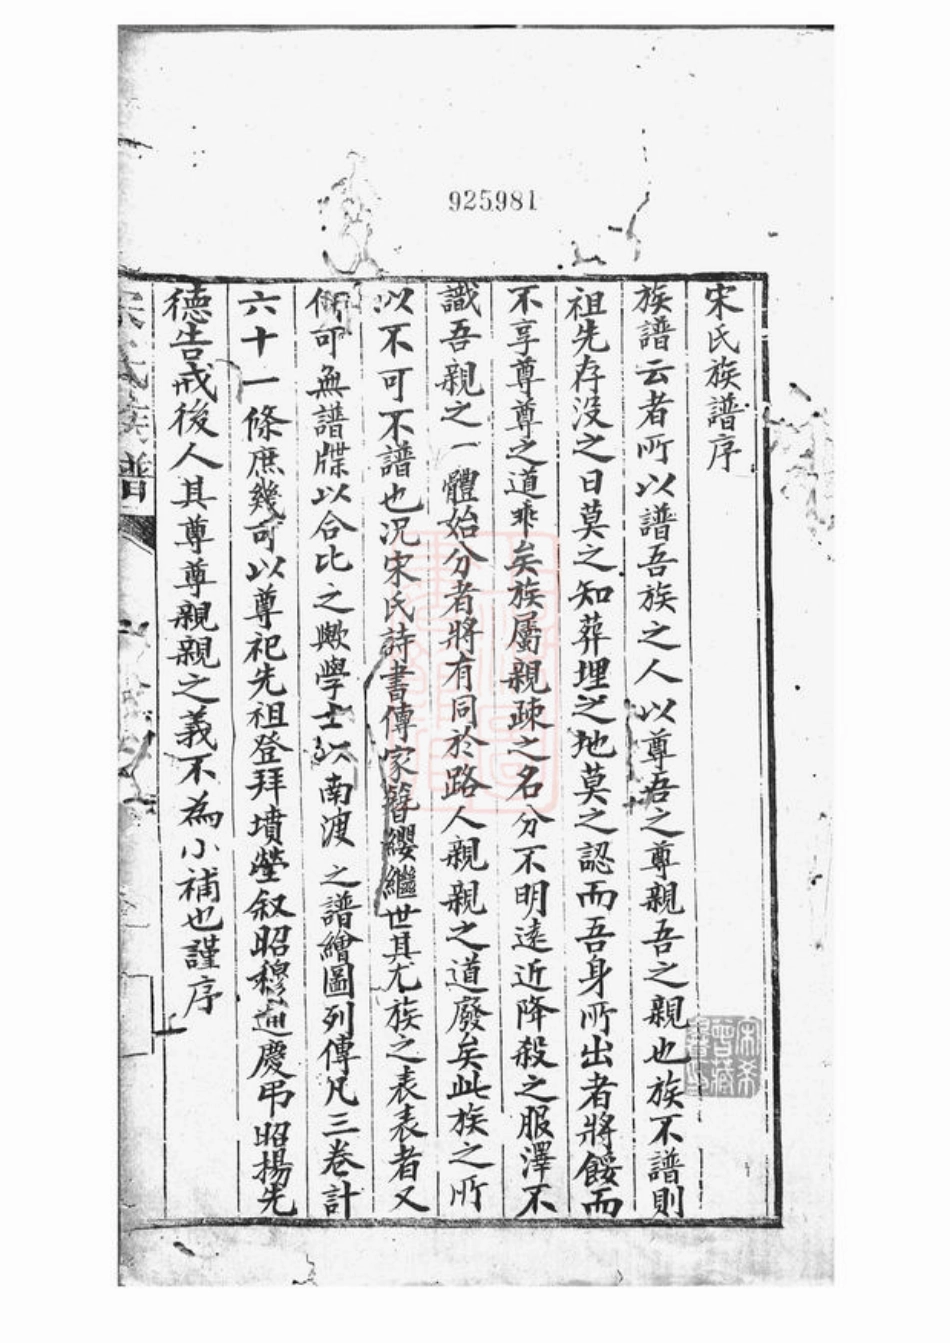 925981
宋氏族譜序
族譜云者所以譜吾族之人以尊吾之尊親吾之親也族不譜則
祖先存没之日莫之知葬埋之地莫之認而吾身所出者將餒而
不享尊尊之道乖矣族屬親疎之名分不明遠近降殺之服澤不
識吾親之一體始分者將有同於路人親親之道廢矣此族之所
以不可不譜也况宋氏詩書傳家簪纓繼世其尤族之表表者又
何可無譜牒以合比之歟學士以南渡之譜繪圖列傳凡三卷計
六十一條庶幾可以尊祀先祖登拜墳塋叙昭穆通慶弔昭揚先
德告戒後人其尊尊親親之義不為小補也謹序
宋氏族譜